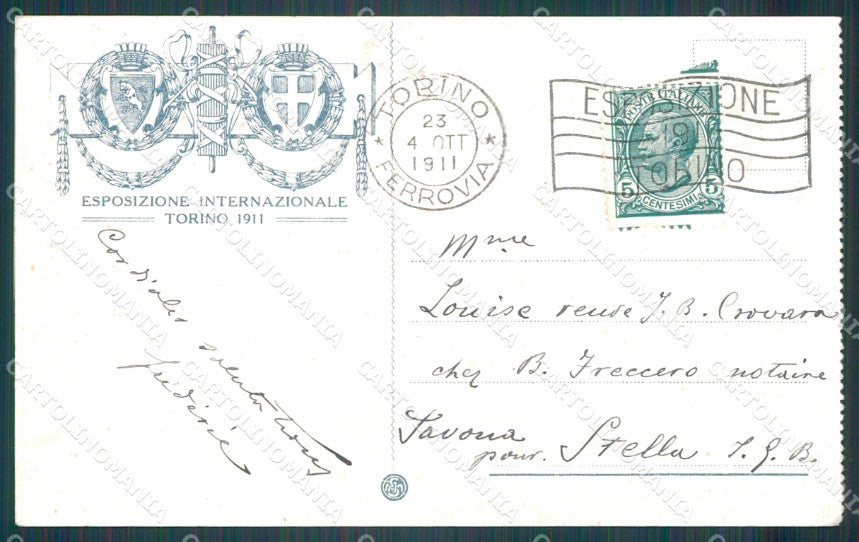 ESPOSIZIONE INTERNAZIONALE
TORINO 1911
TORINO
23
4 OTT
1911
FERROVIA
ESPOSIZIONE
1911
TORINO
POSTE ITALIANE
5 5
CENTESIMI
Cordiales salutations
Mme
Louise veuve J. B. Crovara
chez B. Freccero notaire
Savona
pour. Stella S. G. B.
CARTOLINOMANIA